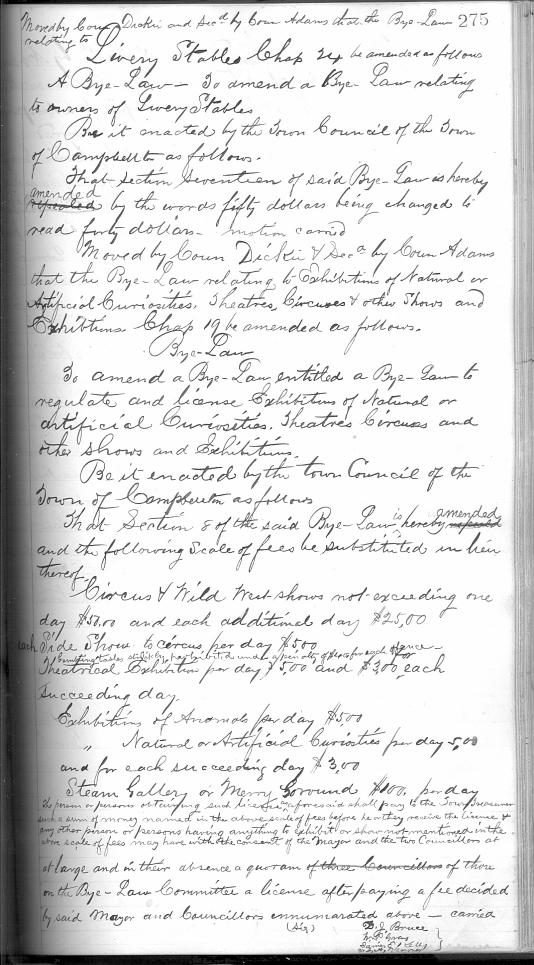 Moved by Coun Dickie and Secd by Coun Adams that the Bye-Law 275
relating to
Livery Stables Chap 24 be amended as follows
A Bye-Law - To amend a Bye-Law relating
to owners of Livery Stables
Be it enacted by the Town Council of the Town
of Campbellton as follows.
That section Seventeen of said Bye-Law is hereby
amended
repealed by the words fifty dollars being changed to
read forty dollars - motion carried
Moved by Coun Dickie & Secd by Coun Adams
that the Bye-Law relating to Exhibitions of Natural or
Artificial Curiosities, Theatres, Circuses & other Shows and
Exhibitions Chap 19 be amended as follows.
Bye-Law
To amend a Bye-Law entitled a Bye-Law to
regulate and license Exhibitions of Natural or
artificial Curiosities, Theatres Circuses and
other shows and Exhibitions.
Be it enacted by the town Council of the
Town of Campbellton as follows
That Section 8 of the said Bye-Law is hereby amended
and the following Scale of fees be substituted in lieu
thereof.
Circus & Wild West shows not exceeding one
day $50.00 and each additional day $25,00
each Side Show to circus per day $5.00
under a penalty of for each offence
Theatrical Exhibition per day $5,00 and $3.00 each
succeeding day.
Exhibitions of Animals per day $5,00
" Natural or Artificial Curiosties per day 5,00
and for each succeeding day $3,00
Steam Gallery or Merry Goround $1.00, per day
The person or persons obtaining such license as aforesaid shall pay to the Town Treasurer
such a sum of money named in the above scale of fees before he or they receive the license &
any other person or persons having anything to exhibit or show not mentioned in the
above scale of fees may have with the consent of the Mayor and the two Councillors at
at large and in their absence a quoram of three Councillors of those
on the Bye-Law Committee a license after paying a fee decided
by said Mayor and Councillors ennumarated above - carried
(Sig) D.J. Bruce